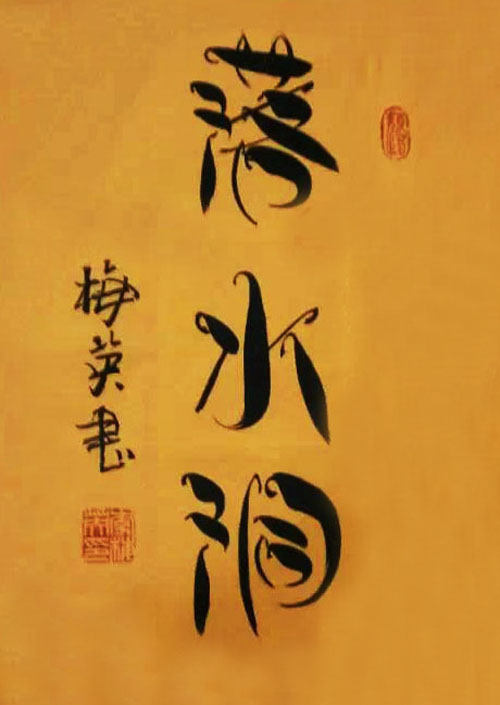 落水洞
梅英书